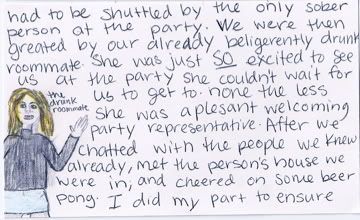 had to be shuttled by the only sober
person at the party. We were then
greated by our already beligerently drunk
roommate. She was just SO excited to see
us at the party she couldn't wait for
us to get to. none the less
the
drunk
roommate
she was a plesant welcoming
party representative. After we
chatted with the people we knew
already, met the person's house we
were in, and cheered on some beer
pong. I did my part to ensure